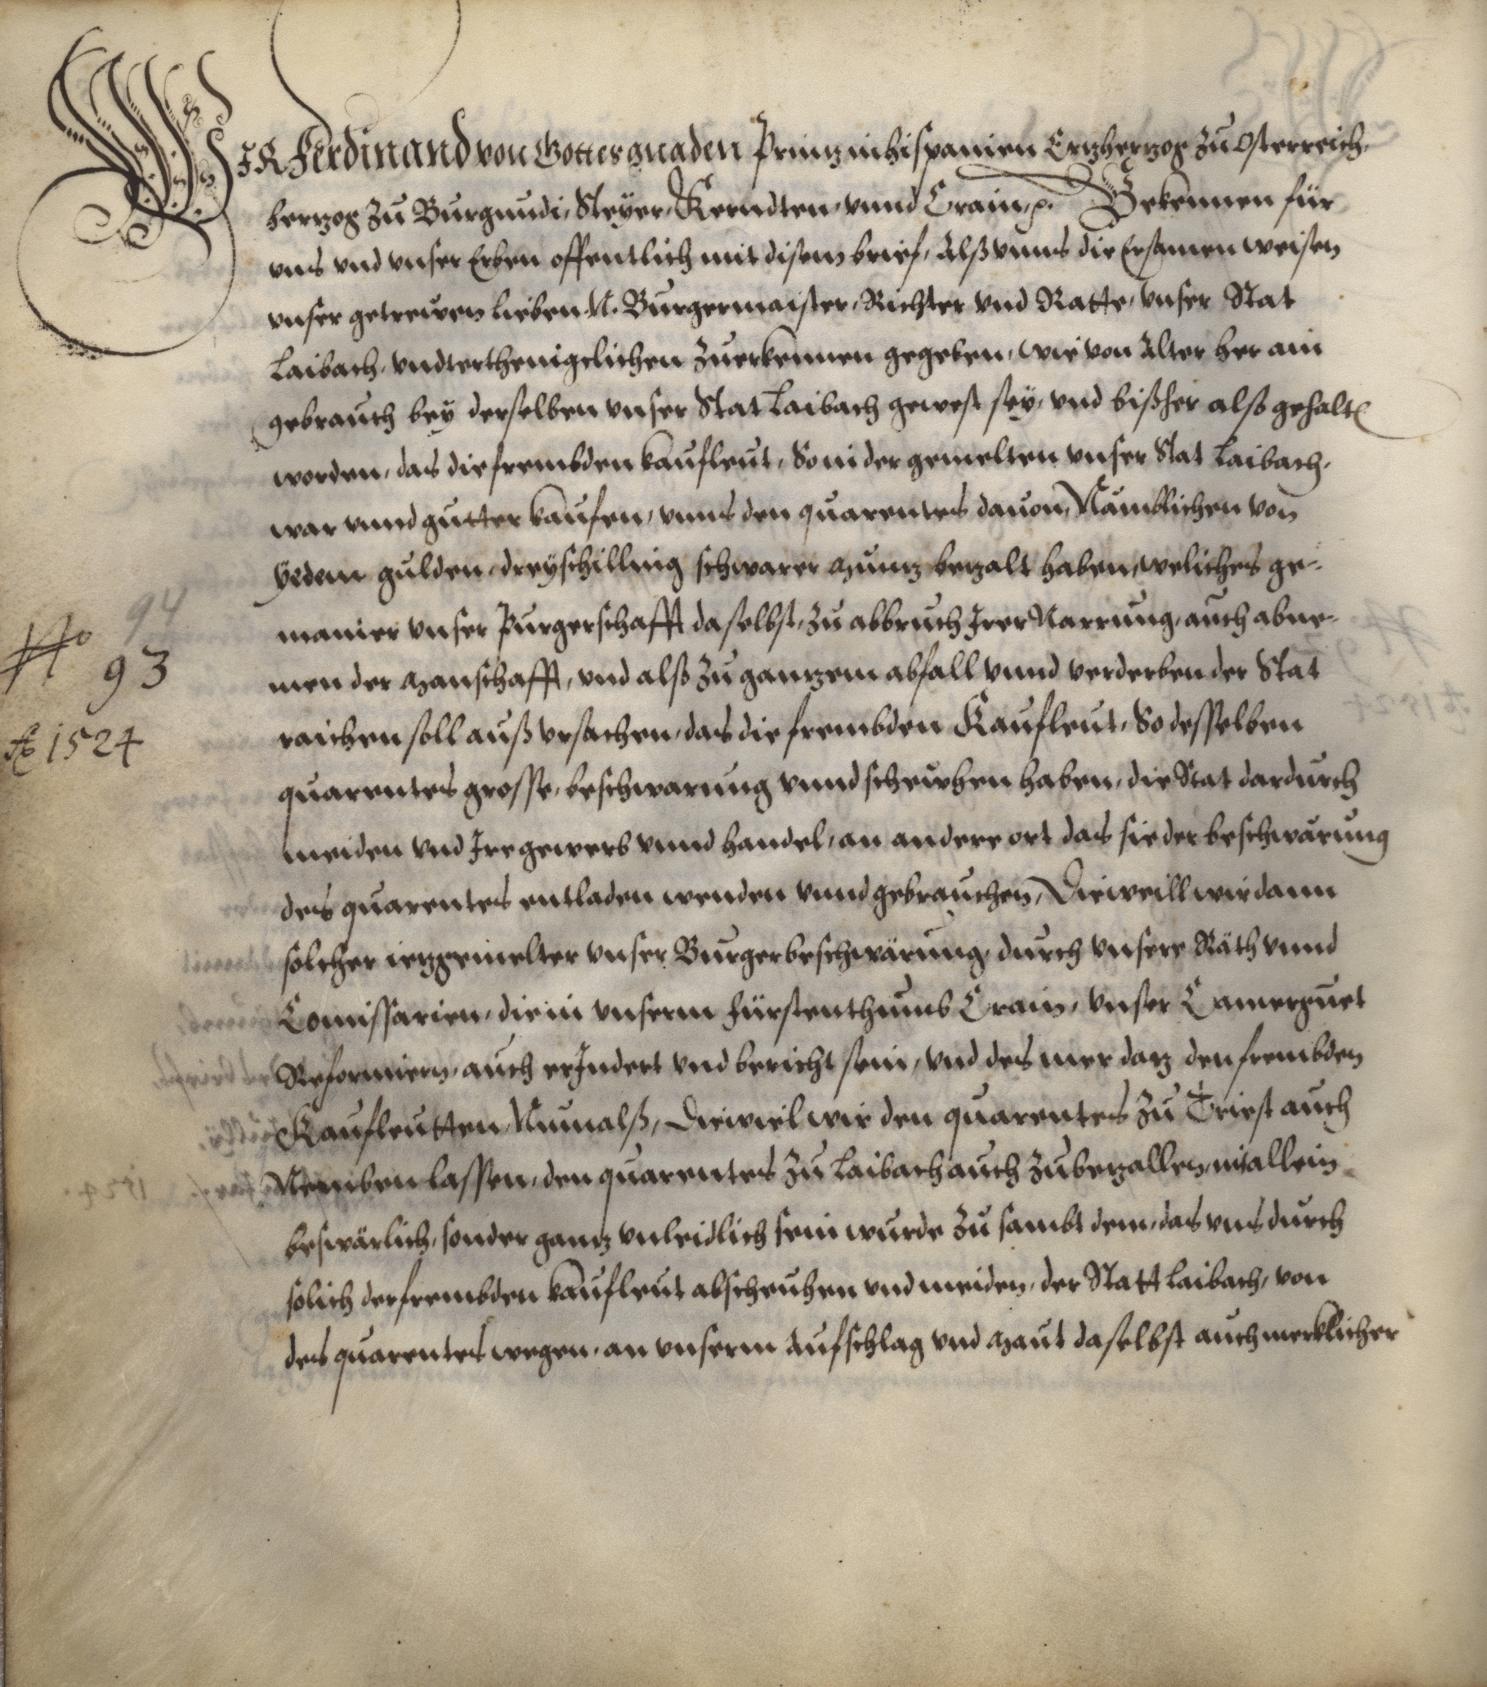 WIR Ferdinand von Gottes gnaden Prinz in hispanien Ertzhertzog zu Osterreich,
hertzog zu Burgundi, Steyer, Kerndten, vnnd Crain, p. Bekennen für
vns vnd vnser Erben offentlich mit disem brief, Alß vnns die Ersamen weisen
vnser getrewen lieben N. Burgermaister, Richter vnd Ratte, vnser Stat
Laibach, vndterthenigelichen zuerkennen gegeben, wie von Alter her ain
gebrauch bey derselben vnser Stat Laibach gewest sey, vnd bißher also gehalt
worden, das die frembden kaufleut, So in der gemelten vnser Stat Laibach,
war vnnd gutter kaufen, vnns den quarentes dauon, Nämblichen von
yedem gulden, drey schilling schwarer Muntz betzalt haben, weliches ge-
manier vnser Purgerschafft daselbst, zu abbruch Irer Narrung, auch abne-
men der Manschafft, vnd also zu gantzem abfall vnnd verderben der Stat
raichen soll auß vrsachen, das die frembden Kaufleut, So desselben
quarentes grosse, beschwarung vnnd scheuhen haben, die Stat dardurch
meiden vnd Ire gewerb vnnd handel, an andere ort das sie der beschwärung
des quarentes entladen wenden vnnd gebrauchen, Dieweill wir dann
solcher ietzgemelter vnser Burger beschwärung, durch vnsere Räth vnnd
Comissarien, die in vnserm fürstenthumb Crain, vnser Camerguet
Reformiern, auch erIndert vnd bericht sein, vnd des mer datz den frembden
Kaufleutten, Numalß, Dieweil wir den quarentes zu Triest auch
Nemben lassen, den quarentes zu Laibach auch zubetzallen, nit allein
beswärlich, sonder gantz vnleidlich sein wurde zu sambt dem, das vns durch
solich der frembden kaufleut abscheuhen vnd meiden, der Statt Laibach, von
des quarentes wegen, an vnserm Aufschlag vnd Maut daselbst auch mercklicher
94
No 93
Ao 1524